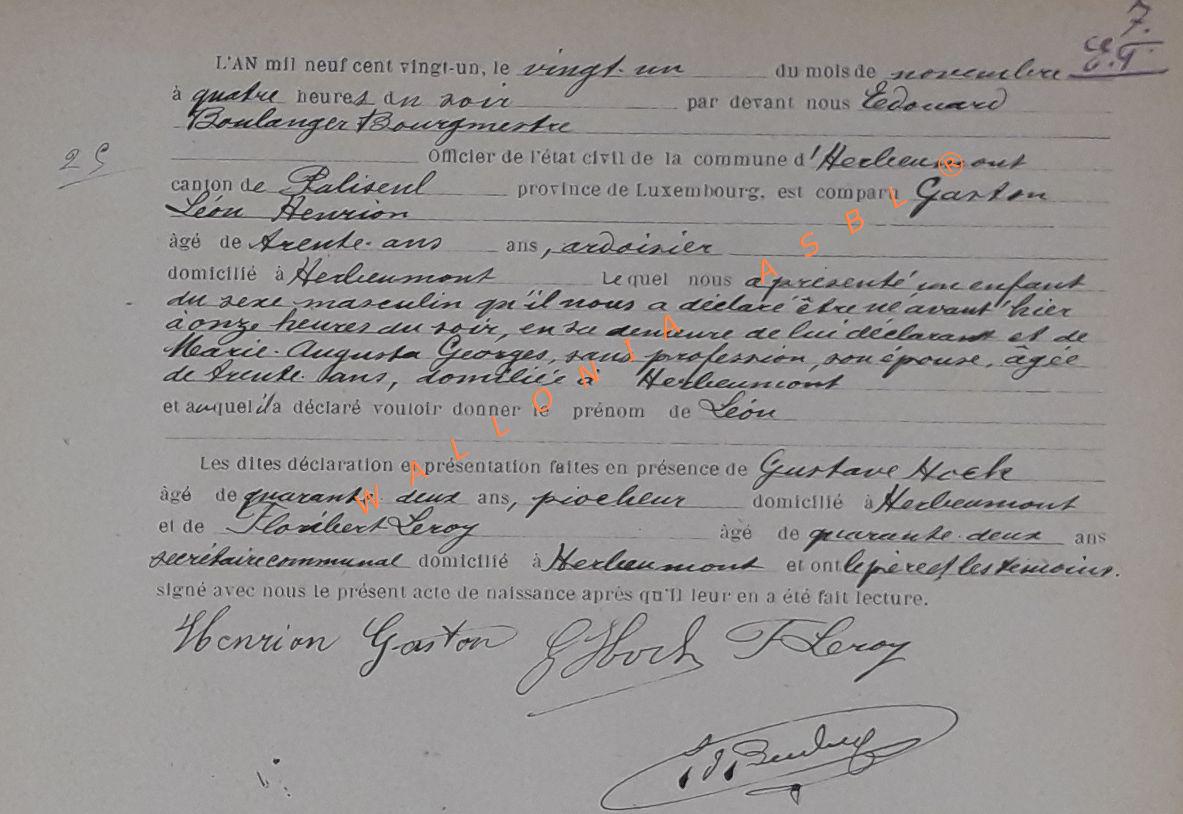 7.
L'AN mil neuf cent vingt-un, le vingt-un du mois de novembre
à quatre heures du soir par devant nous Edouard
Boulanger Bourgmestre
25 Officier de l'état civil de la commune d'Herbeumont
canton de Paliseul province de Luxembourg, est comparu Gaston
Léon Henrion
âgé de trente-ans ans, ardoisier
domicilié à Herbeumont Lequel nous a présenté un enfant
du sexe masculin qu'il nous a déclaré être né avant hier
à onze heures du soir, en sa demeure de lui déclarant et de
Marie-Augusta Georges, sans profession, son épouse, âgée
de trente ans, domiciliée à Herbeumont
et auquel il a déclaré vouloir donner le prénom de Léon
Les dites déclaration et présentation faites en présence de Gustave Hock
âgé de quarante-deux ans, piocheur domicilié à Herbeumont
et de Floribert Leroy âgé de quarante-deux ans
secrétaire communal domicilié à Herbeumont et ont le père et les témoins.
signé avec nous le présent acte de naissance après qu'il leur en a été fait lecture.
Henrion Gaston G Hock F Leroy
WALLONIA ASBL ®